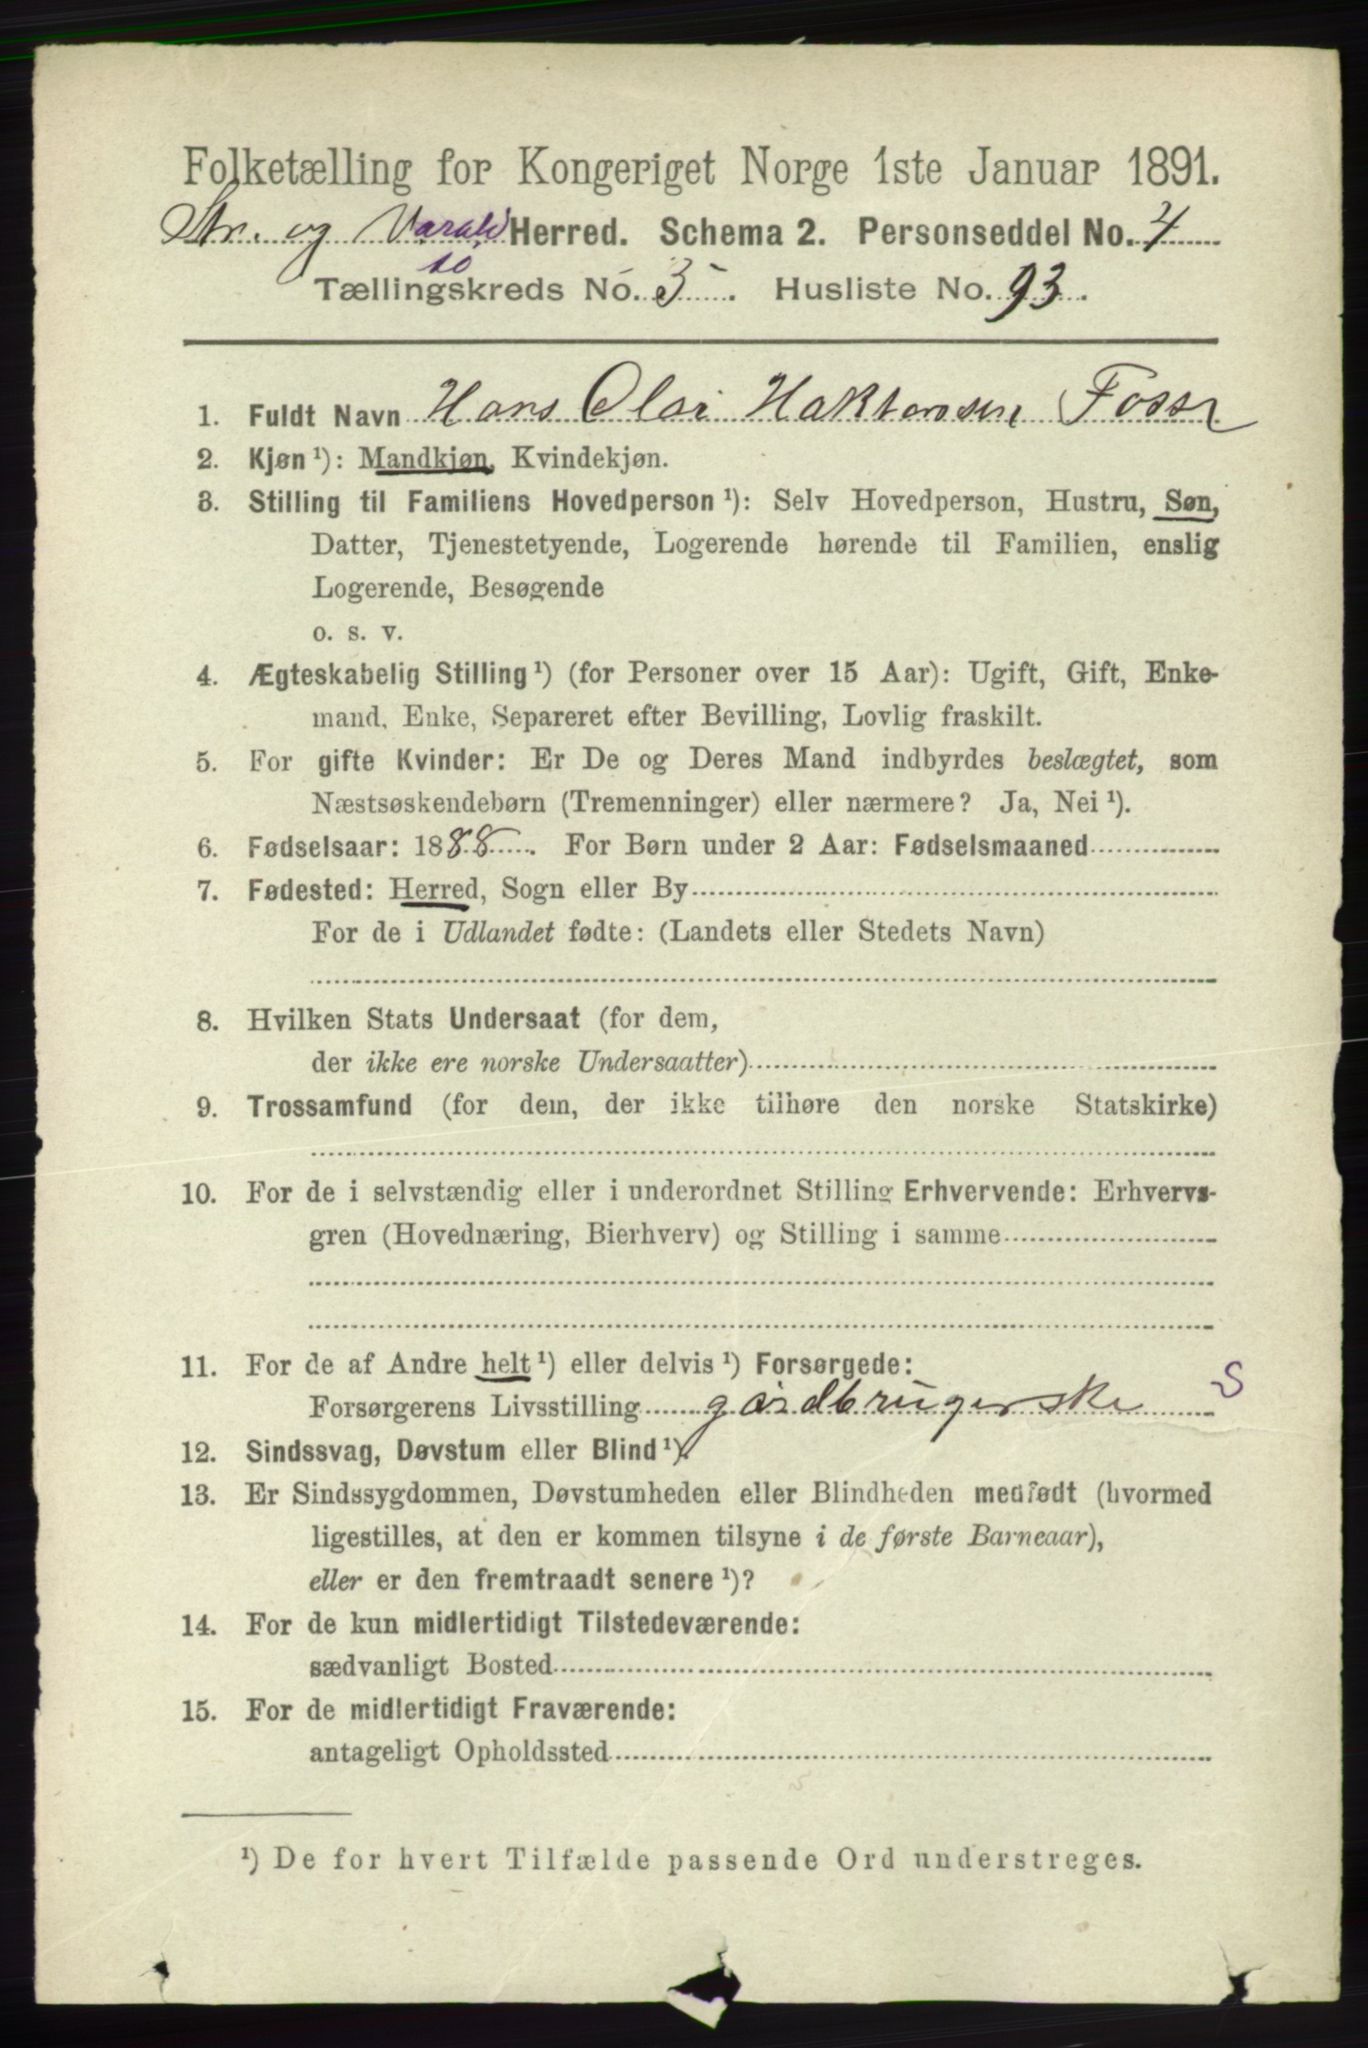 Folketælling for Kongeriget Norge 1ste Januar 1891.
Str. og Varald Herred. Schema 2. Personseddel No. 4
10
Tællingskreds No. 5. Husliste No. 93.
1. Fuldt Navn Hans Olai Foss
2. Kjøn ¹): Mandkjøn, Kvindekjøn.
3. Stilling til Familiens Hovedperson ¹): Selv Hovedperson, Hustru, Søn,
Datter, Tjenestetyende, Logerende hørende til Familien, enslig
Logerende, Besøgende
o. s. v.
4. Ægteskabelig Stilling ¹) (for Personer over 15 Aar): Ugift, Gift, Enke-
mand, Enke, Separeret efter Bevilling, Lovlig fraskilt.
5. For gifte Kvinder: Er De og Deres Mand indbyrdes beslægtet, som
Næstsøskendebørn (Tremenninger) eller nærmere? Ja, Nei ¹).
6. Fødselsaar: 1888. For Børn under 2 Aar: Fødselsmaaned
7. Fødested: Herred, Sogn eller By
For de i Udlandet fødte: (Landets eller Stedets Navn)
8. Hvilken Stats Undersaat (for dem,
der ikke ere norske Undersaatter)
9. Trossamfund (for dem, der ikke tilhøre den norske Statskirke)
10. For de i selvstændig eller i underordnet Stilling Erhvervende: Erhvervs-
gren (Hovednæring, Bierhverv) og Stilling i samme
11. For de af Andre helt ¹) eller delvis ¹) Forsørgede:
Forsørgerens Livsstilling gardbrugerske S
12. Sindssvag, Døvstum eller Blind ¹).
13. Er Sindssygdommen, Døvstumheden eller Blindheden medfødt (hvormed
ligestilles, at den er kommen tilsyne i de første Barneaar),
eller er den fremtraadt senere ¹)?
14. For de kun midlertidigt Tilstedeværende:
sædvanligt Bosted
15. For de midlertidigt Fraværende:
antageligt Opholdssted
¹) De for hvert Tilfælde passende Ord understreges.